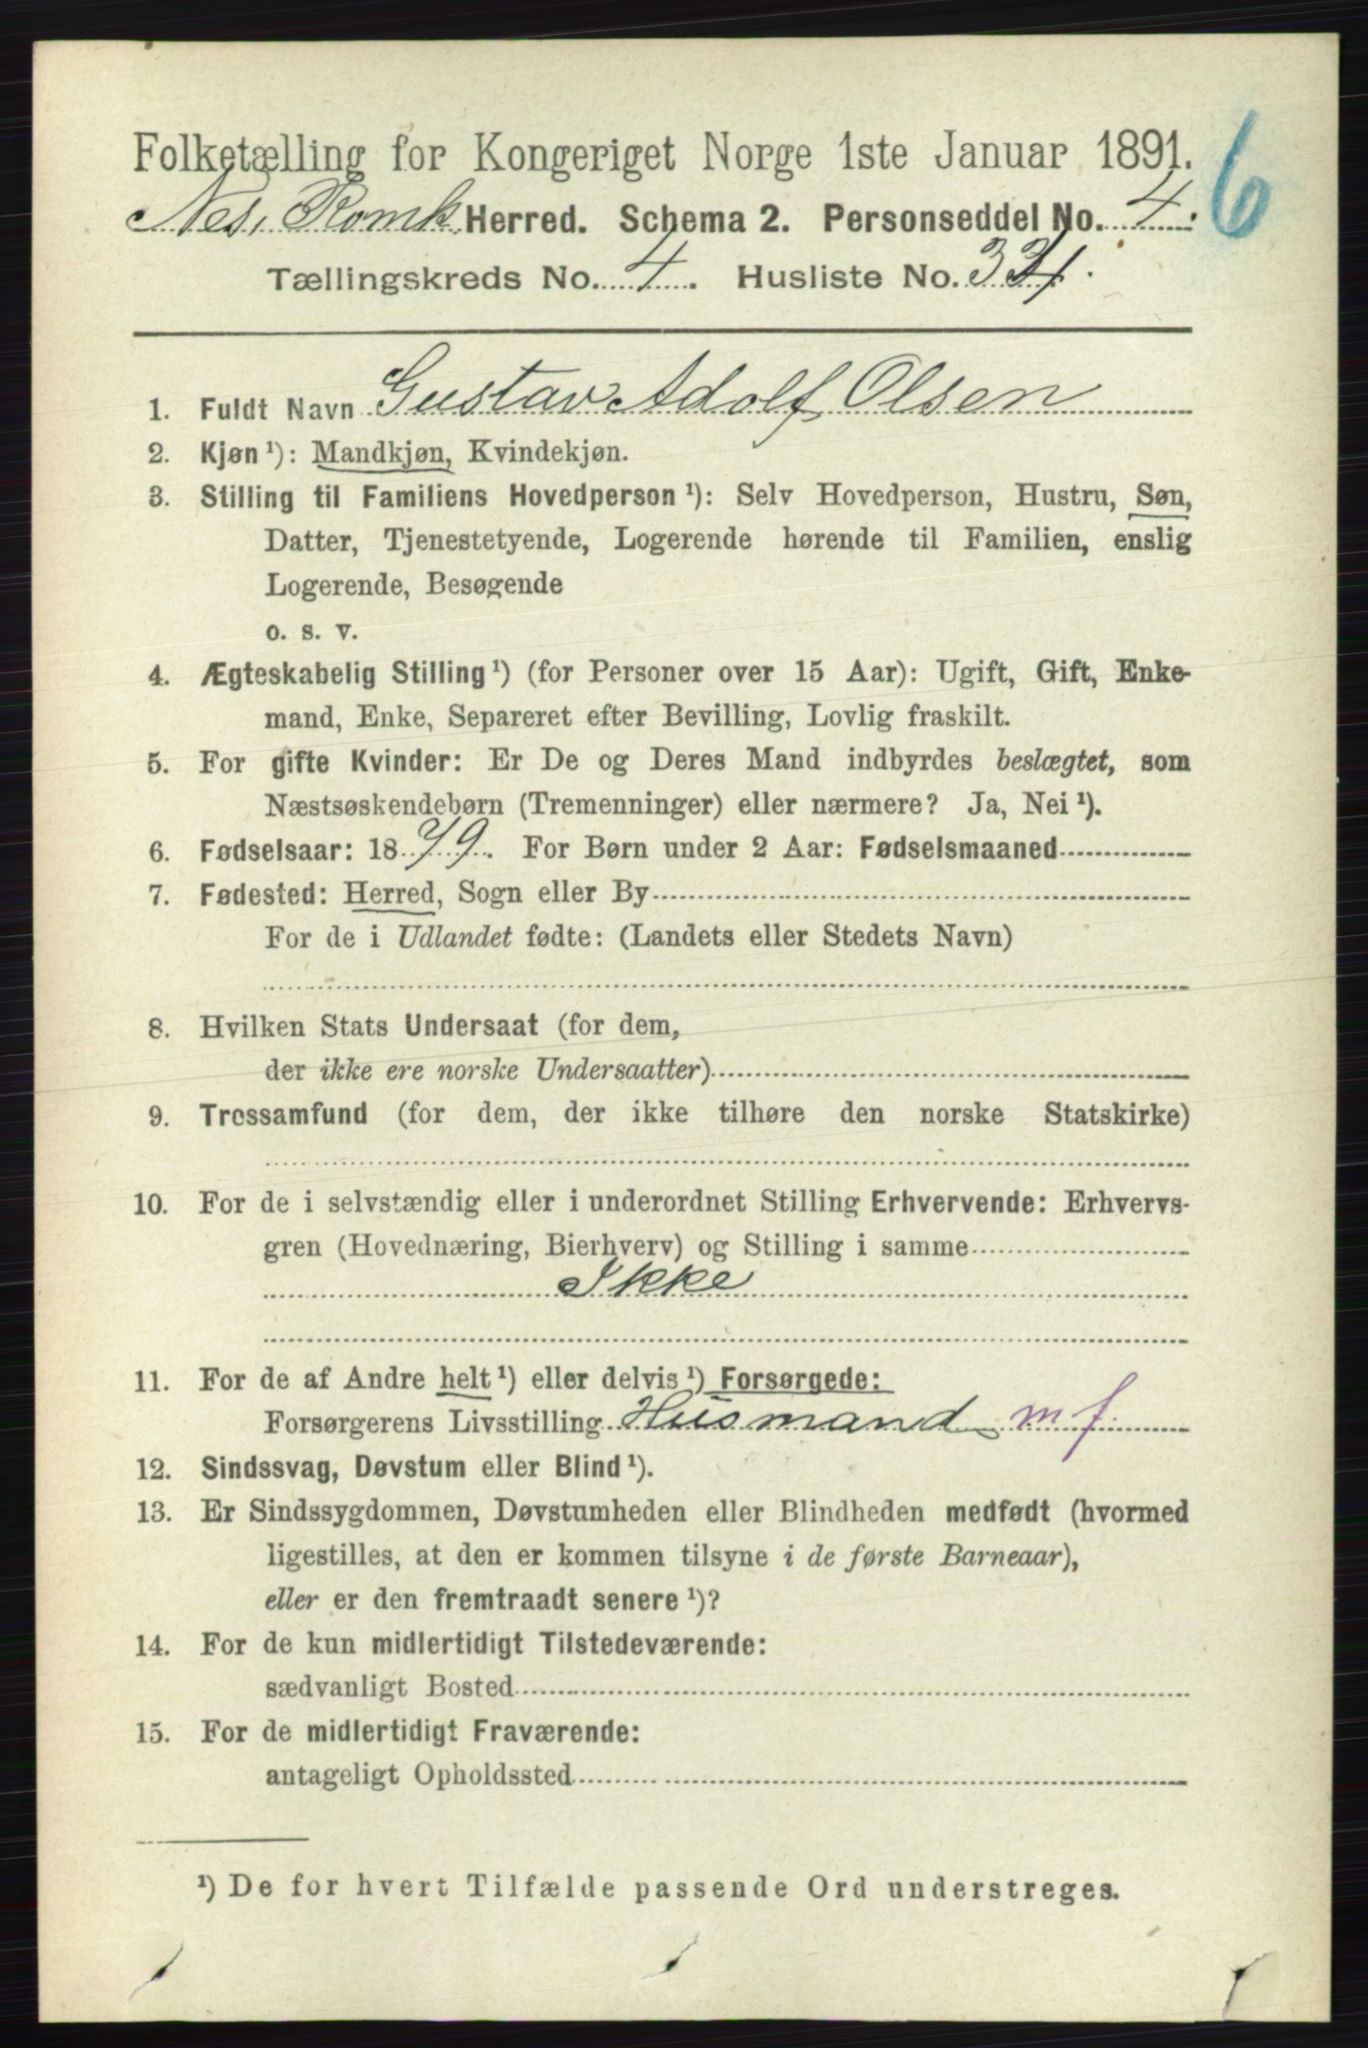 Folketælling for Kongeriget Norge 1ste Januar 1891.
6
Nes, Romk. Herred. Schema 2. Personseddel No. 4.
Tællingskreds No. 4. Husliste No. 34.
1. Fuldt Navn Gustav Adolf Olsen
2. Kjøn¹): Mandkjøn, Kvindekjøn.
3. Stilling til Familiens Hovedperson¹): Selv Hovedperson, Hustru, Søn,
Datter, Tjenestetyende, Logerende hørende til Familien, enslig
Logerende, Besøgende
o. s. v.
4. Ægteskabelig Stilling¹) (for Personer over 15 Aar): Ugift, Gift, Enke-
mand, Enke, Separeret efter Bevilling, Lovlig fraskilt.
5. For gifte Kvinder: Er De og Deres Mand indbyrdes beslægtet, som
Næstsøskendebørn (Tremenninger) eller nærmere? Ja, Nei¹).
6. Fødselsaar: 1879. For Børn under 2 Aar: Fødselsmaaned
7. Fødested: Herred, Sogn eller By
For de i Udlandet fødte: (Landets eller Stedets Navn)
8. Hvilken Stats Undersaat (for dem,
der ikke ere norske Undersaatter)
9. Trossamfund (for dem, der ikke tilhøre den norske Statskirke)
10. For de i selvstændig eller i underordnet Stilling Erhvervende: Erhvervs-
gren (Hovednæring, Bierhverv) og Stilling i samme
Ikke
11. For de af Andre helt¹) eller delvis¹) Forsørgede:
Forsørgerens Livsstilling Husmand m f
12. Sindssvag, Døvstum eller Blind¹).
13. Er Sindssygdommen, Døvstumheden eller Blindheden medfødt (hvormed
ligestilles, at den er kommen tilsyne i de første Barneaar),
eller er den fremtraadt senere¹)?
14. For de kun midlertidigt Tilstedeværende:
sædvanligt Bosted
15. For de midlertidigt Fraværende:
antageligt Opholdssted
¹) De for hvert Tilfælde passende Ord understreges.